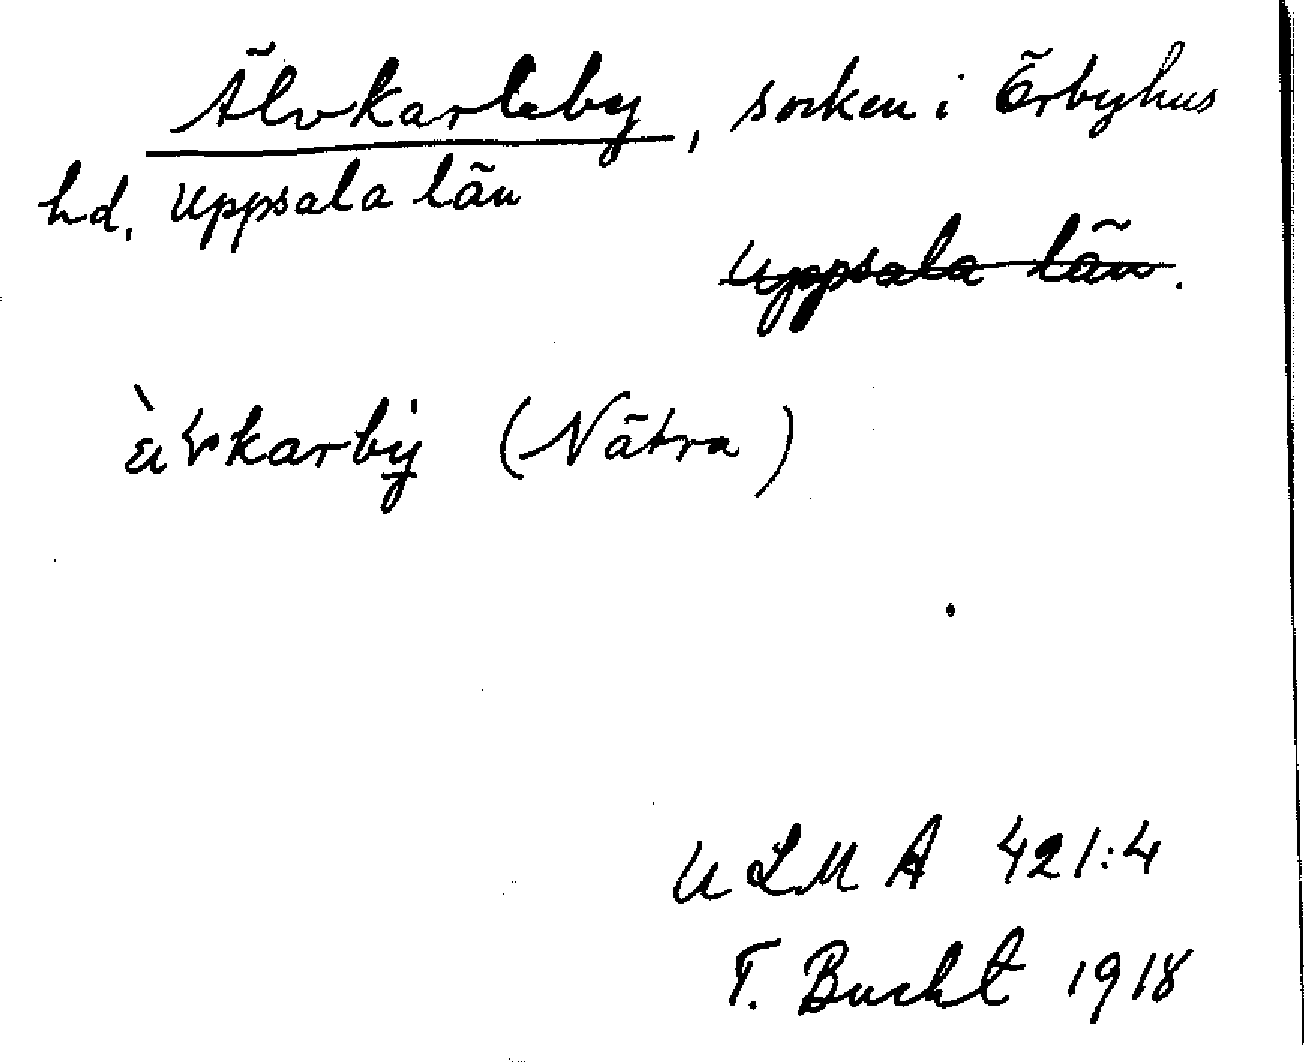 Älvkarleby, socken i Örbyhus
hd. Uppsala län
Uppsala län.
(Nätra)
ULMA 421:4
T. Bucht 1918